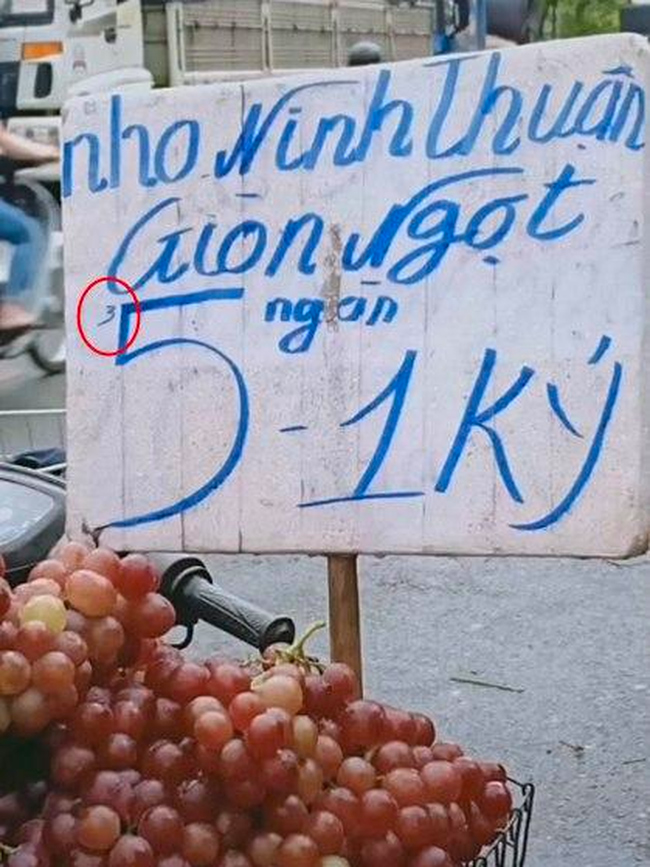 nho Ninh Thuận
Giòn Ngọt
ngàn
3 5 - 1 Ký